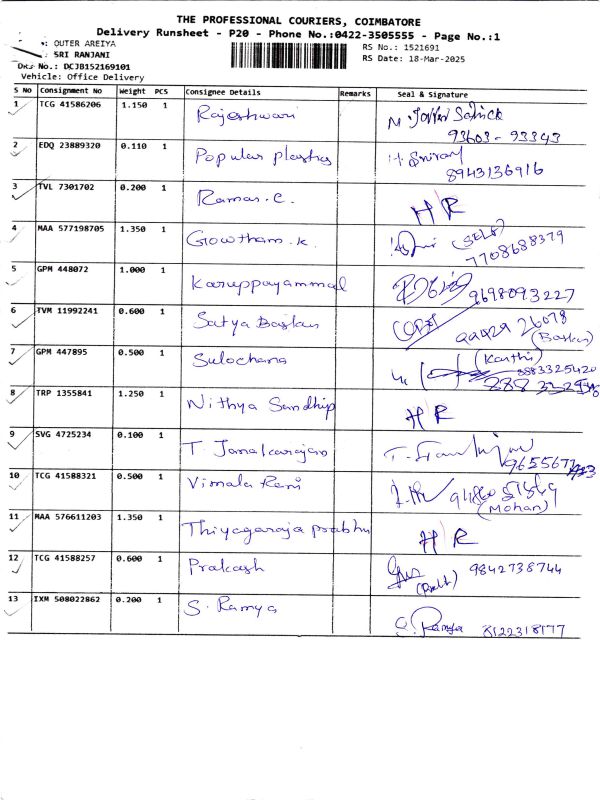 THE PROFESSIONAL COURIERS, COIMBATORE
Delivery Runsheet - P20 - Phone No.:0422-3505555 - Page No.:1
: OUTER AREIYA
: SRI RANJANI
DRS No.: DCJB152169101
Vehicle: Office Delivery
RS No.: 1521691
RS Date: 18-Mar-2025
S No Consignment No Weight PCS Consignee Details Remarks Seal & Signature
1 TCG 41586206 1.150 1 Rajeshwari
93603-93343
2 EDQ 23889320 0.110 1 Popular plastics H. Sriram
8943136916
3 TVL 7301702 0.200 1 Raman.C. H R
4 MAA 577198705 1.350 1 Gowtham.K. (SELF)
7708688379
5 GPM 448072 1.000 1 Karuppayammal 9698093227
6 TVM 11992241 0.600 1 Satya Baskar 26078
(Baskar)
7 GPM 447895 0.500 1 Sulochana (Karthi)
8883325420
8 TRP 1355841 1.250 1 Nithya Sandhip H R
9 SVG 4725234 0.100 1 T. Janakarajan
10 TCG 41588321 0.500 1 Vimala Rani
(Mohan)
11 MAA 576611203 1.350 1 Thiyagaraja prabhu H R
12 TCG 41588257 0.600 1 Prakash 9842738744
13 IXM 508022862 0.200 1 S. Ramya S. Ramya 8122318177